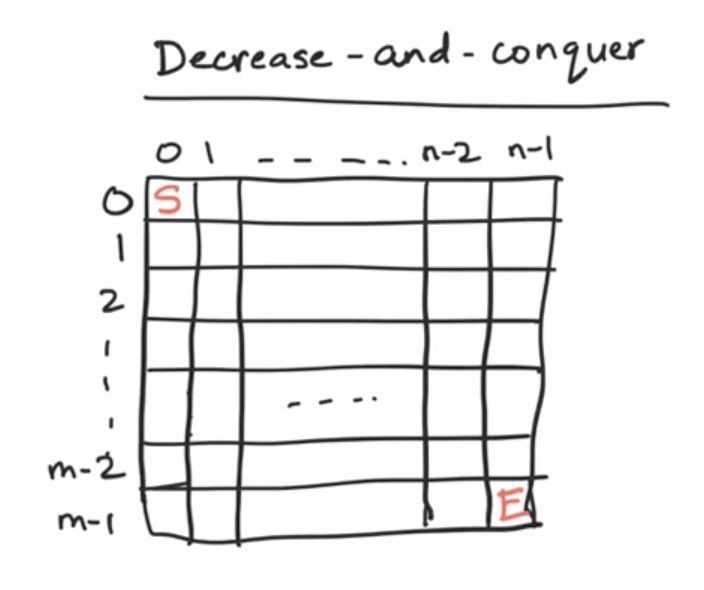 Decrease-and-conquer
0 1 -- -- --. n-2 n-1
0 S
1
2
m-2
m-1 E